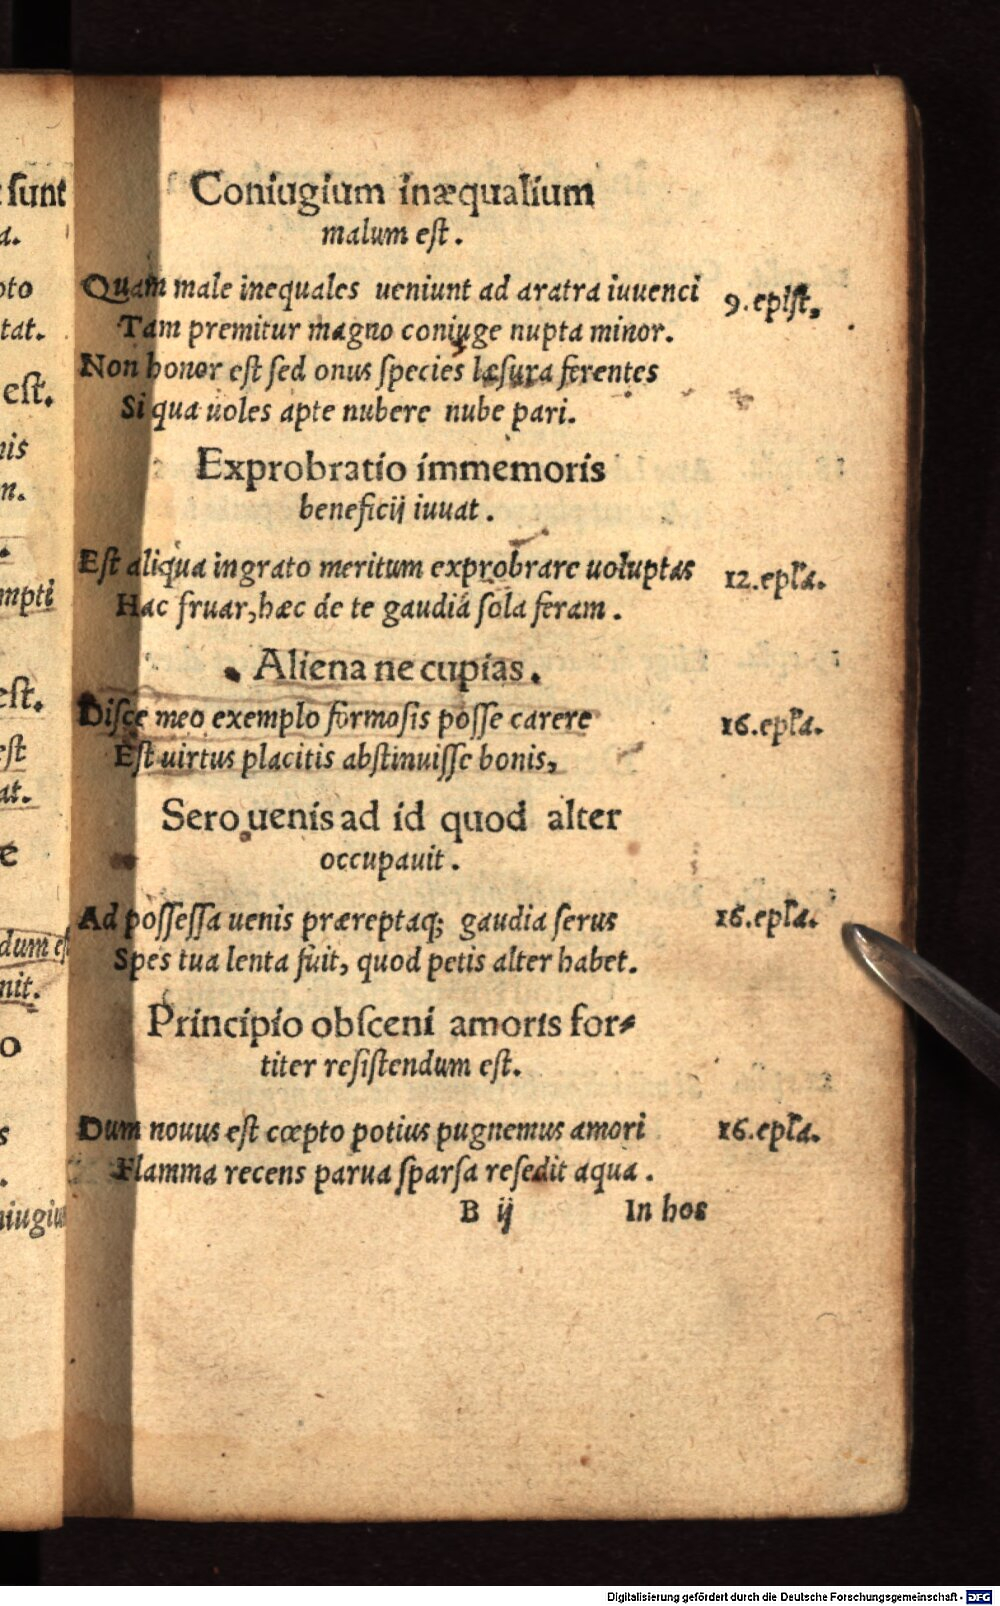 Coniugium inæqualium
malum eſt.
Quam male inequales ueniunt ad aratra iuuenci 9. epiſt,
Tam premitur magno coniuge nupta minor.
Non honor eſt ſed onus ſpecies læſura ferentes
Si qua uoles apte nubere nube pari.
Exprobratio immemoris
beneficij iuuat.
Eſt aliqua ingrato meritum exprobrare uoluptas 12. epl̃a.
Hac fruar, hæc de te gaudia ſola feram.
Aliena ne cupias.
Diſce meo exemplo formoſis poſſe carere 16. epl̃a.
Eſt uirtus placitis abſtinuiſſe bonis,
Sero uenis ad id quod alter
occupauit.
Ad poſſeſſa uenis præreptaq; gaudia ſerus 16. epl̃a.
Spes tua lenta fuit, quod petis alter habet.
Principio obſceni amoris for⸗
titer reſiſtendum eſt.
Dum nouus eſt cœpto potius pugnemus amori 16. epl̃a.
Flamma recens parua ſparſa reſedit aqua.
B ij In hos
Digitalisierung gefördert durch die Deutsche Forschungsgemeinschaft - DFG